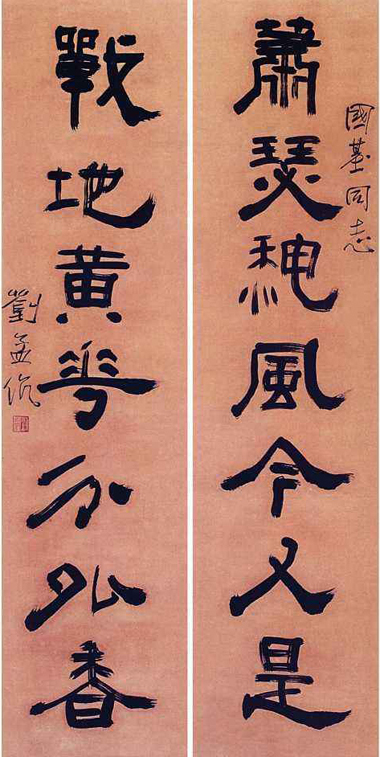 國基同志
蕭瑟秋風今又是
戰地黄花分外香
劉孟伉